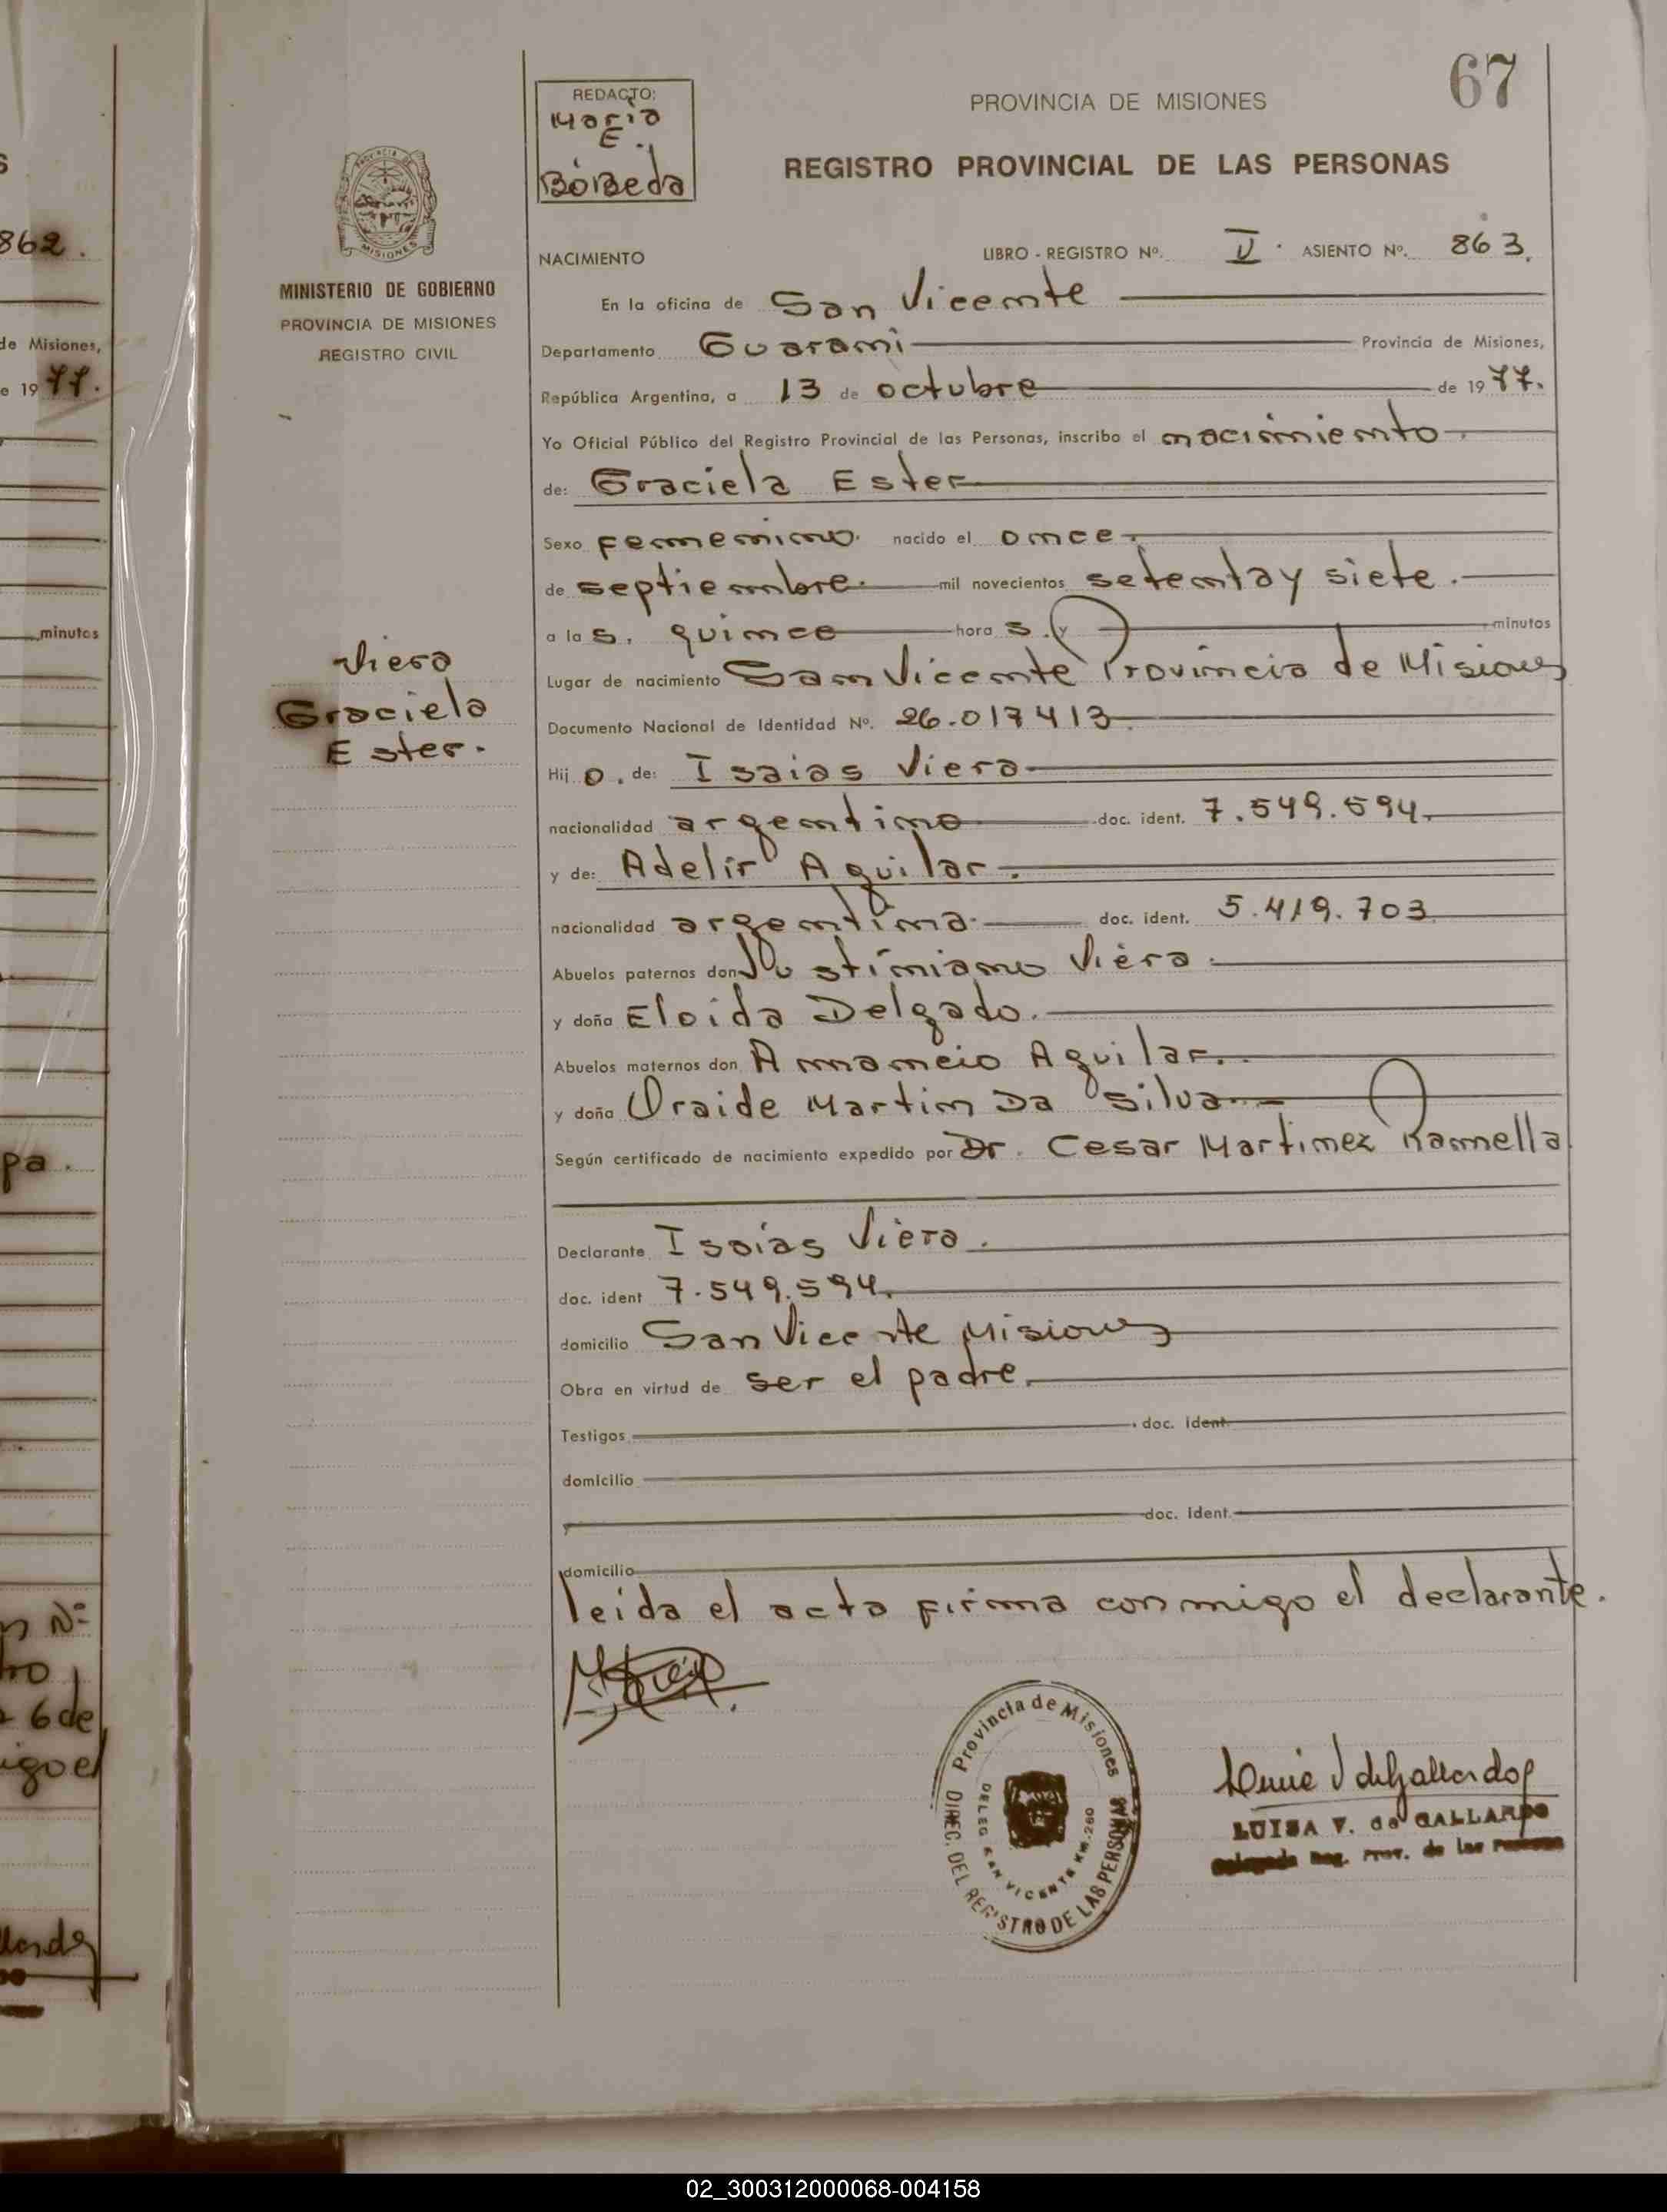 862.
de Misiones,
e 1977.
minutos
pa.
n Nº
6 de
igo el
67
REDACTO:
Maria
E.
Bóbeda
PROVINCIA DE MISIONES
REGISTRO PROVINCIAL DE LAS PERSONAS
MINISTERIO DE GOBIERNO
PROVINCIA DE MISIONES
REGISTRO CIVIL
NACIMIENTO LIBRO - REGISTRO Nº. II. ASIENTO Nº. 863.
En la oficina de San Vicente
Departamento Guarani Provincia de Misiones,
República Argentina, a 13 de octubre de 1977.
Yo Oficial Público del Registro Provincial de las Personas, inscribo el nacimiento.
de: Graciela Ester
Sexo femenino. nacido el once.
de septiembre. mil novecientos setenta y siete.
a las. quince horas. y minutos
Lugar de nacimiento San Vicente Provincia de Misiones
Documento Nacional de Identidad Nº. 26.017413
Viera
Graciela
Ester.
Hijo. de: Isaias Viera
nacionalidad argentino doc. ident. 7.549.594.
y de: Adelir Aguilar.
nacionalidad argentina. doc. ident. 5.419.703
Abuelos paternos don Justiniano Viera.
y doña Eloida Delgado.
Abuelos maternos don Amancio Aguilar.
y doña Oraide Martin Da Silva
Según certificado de nacimiento expedido por Dr. Cesar Martinez Ramella
Declarante Isaías Viera.
doc. ident 7.549.594.
domicilio San Vicente Misiones
Obra en virtud de ser el padre.
Testigos doc. ident.
domicilio
y doc. ident.
domicilio
leida el acta firma conmigo el declarante.
Provincia de Misiones
DIREC. DEL REGISTRO DE LAS PERSONAS
DELEG. SAN VICENTE KM. 260
LUISA V. de GALLARDO
Delegada Reg. Prov. de las Personas
02_300312000068-004158